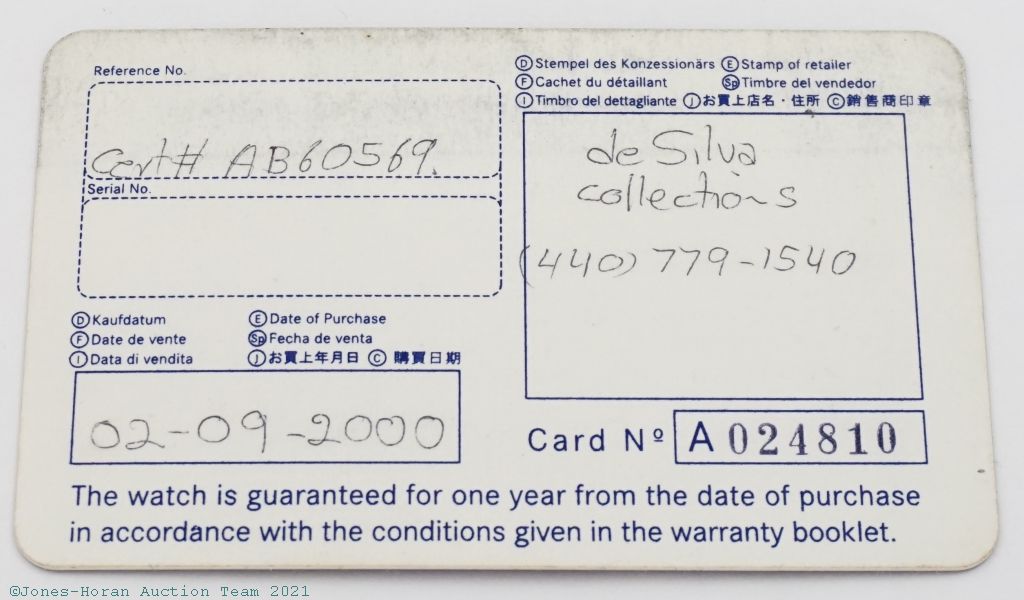 Reference No.
Cert# AB60569.
Serial No.
Ⓓ Stempel des Konzessionärs Ⓔ Stamp of retailer
Ⓕ Cachet du détaillant Ⓢp Timbre del vendedor
Ⓘ Timbro del dettagliante Ⓙ お買上店名・住所 Ⓒ 銷售商印章
de Silva
collections
(440) 779-1540
Ⓓ Kaufdatum Ⓔ Date of Purchase
Ⓕ Date de vente Ⓢp Fecha de venta
Ⓘ Data di vendita Ⓙ お買上年月日 Ⓒ 購買日期
02-09-2000
Card Nº A 024810
The watch is guaranteed for one year from the date of purchase
in accordance with the conditions given in the warranty booklet.
©Jones-Horan Auction Team 2021